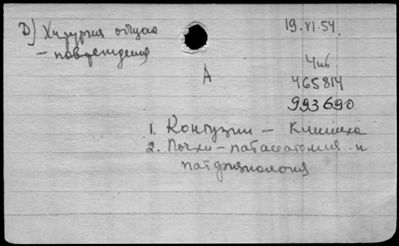 D) Хирургия общая
- повреждения
19.VI.54.
A
Чиб
465814
993690
1. Контузии - Клиника
2. Почки - патанатомия и
патфизиология